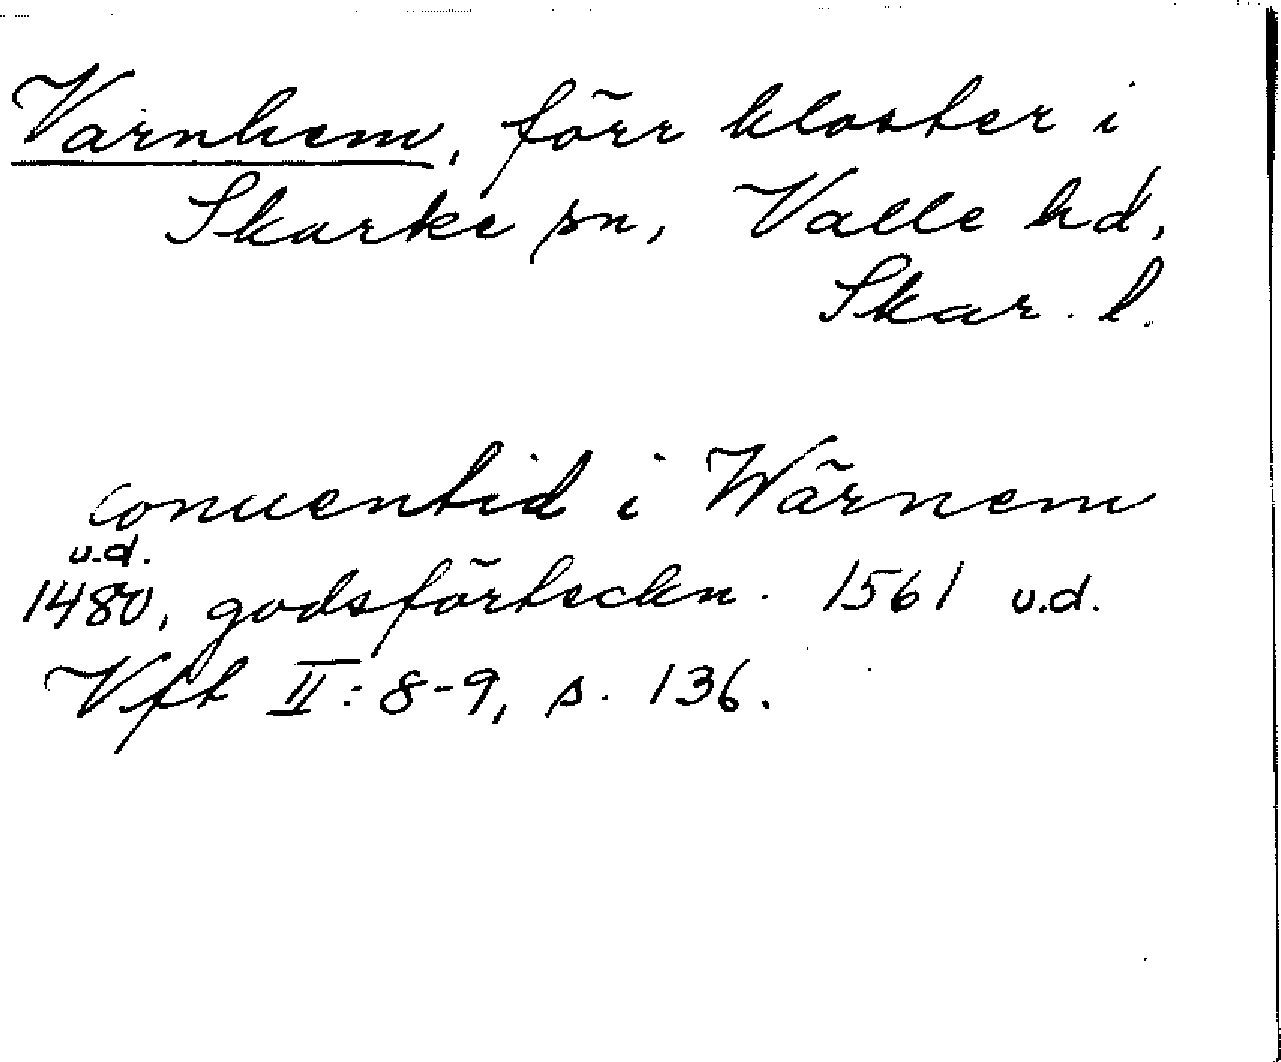 Varnhem, förr kloster i
Skarke sn, Valle hd,
Skar. l.
conuentid i Wärnem
u.d.
1480, godsförteckn. 1561 u.d.
Vft II: 8-9, s. 136.